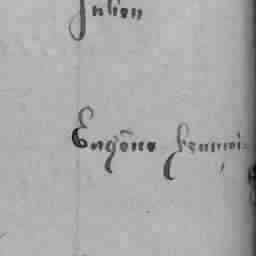 Julien
Eugène françoi